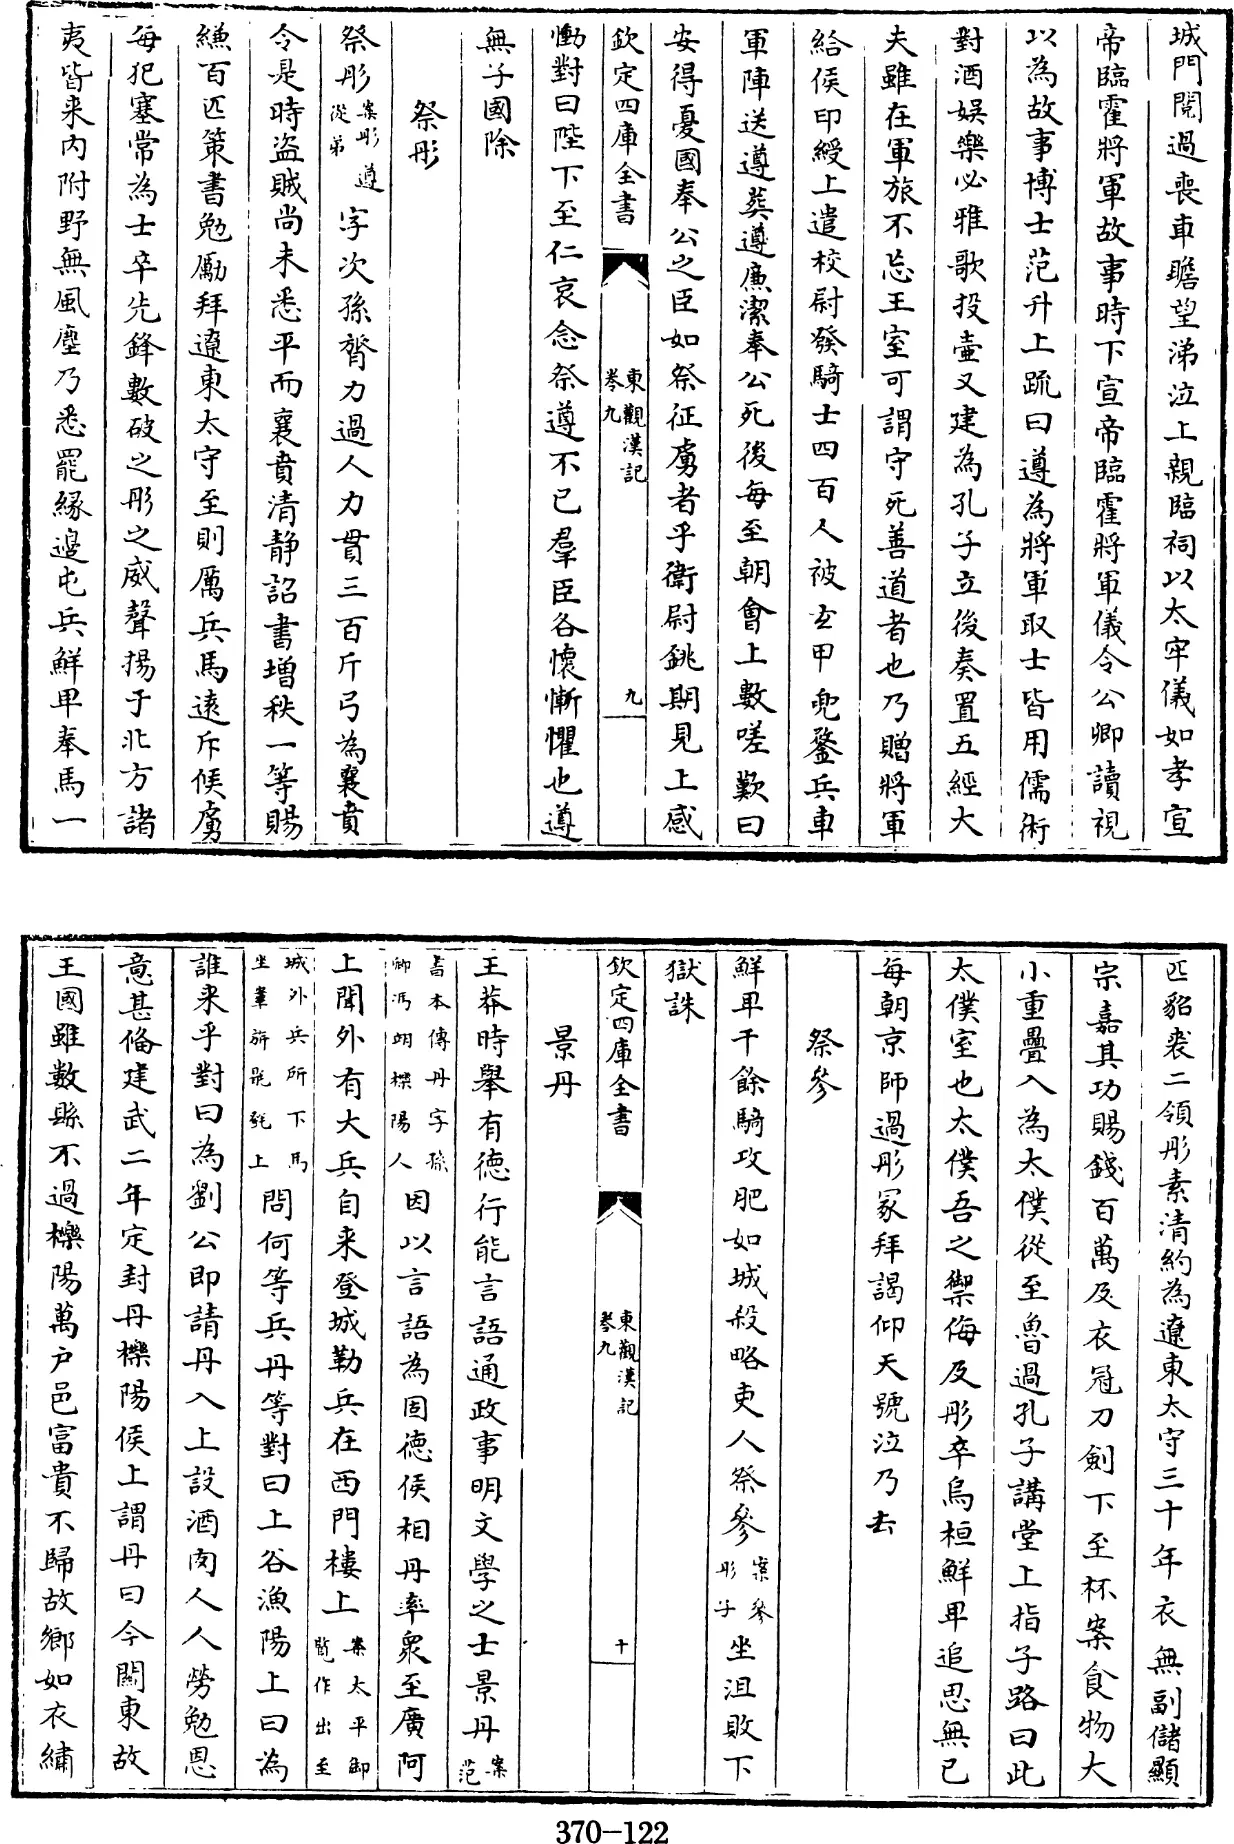 城門閱過喪車瞻望涕泣上親臨祠以太牢儀如孝宣
帝臨霍將軍故事時下宣帝臨霍將軍儀令公卿讀視
以為故事博士范升上疏曰遵為將軍取士皆用儒術
對酒娱樂必雅歌投壷又建為孔子立後奏置五經大
夫雖在軍旅不忘王室可謂守死善道者也乃贈將軍
給侯印綬上遣校尉發騎士四百人被玄甲兜鍪兵車
軍陣送遵葬遵㢘潔奉公死後每至朝會上數嗟歎曰
安得憂國奉公之臣如祭征虜者乎衛尉銚期見上感
欽定四庫全書
東觀漢記
卷九
九
慟對曰陛下至仁哀念祭遵不已羣臣各懷慚懼也遵
無子國除
祭肜
祭肜案肜遵從弟字次孫膂力過人力貫三百斤弓為襄賁
令是時盜賊尚未悉平而襄賁清静詔書增秩一等賜
縑百匹策書勉勵拜遼東太守至則厲兵馬遠斥候虜
每犯塞常為士卒先鋒數破之肜之威聲揚于北方諸
夷皆来内附野無風塵乃悉罷緣邊屯兵鮮卑奉馬一
匹貂裘二領肜素清約為遼東太守三十年衣無副儲顯
宗嘉其功賜錢百萬及衣冠刀劍下至杯案食物大
小重疊入為太僕從至魯過孔子講堂上指子路曰此
太僕室也太僕吾之禦侮及肜卒烏桓鮮卑追思無已
每朝京師過肜冢拜謁仰天號泣乃去
祭參
鮮卑千餘騎攻肥如城殺略吏人祭參案參肜子坐沮敗下
獄誅
欽定四庫全書
東觀漢記
卷九
十
景丹
王莽時舉有德行能言語通政事明文學之士景丹案范
書本傳丹字孫卿馮翊櫟陽人因以言語為固德侯相丹率衆至廣阿
上聞外有大兵自来登城勒兵在西門樓上案太平御覽作出至
城外兵所下馬坐鞌旃㲪㲣上問何等兵丹等對曰上谷漁陽上曰為
誰来乎對曰為劉公即請丹入上設酒肉人人勞勉恩
意甚偹建武二年定封丹櫟陽侯上謂丹曰今關東故
王國雖數縣不過櫟陽萬户邑富貴不歸故鄉如衣繡
370-122